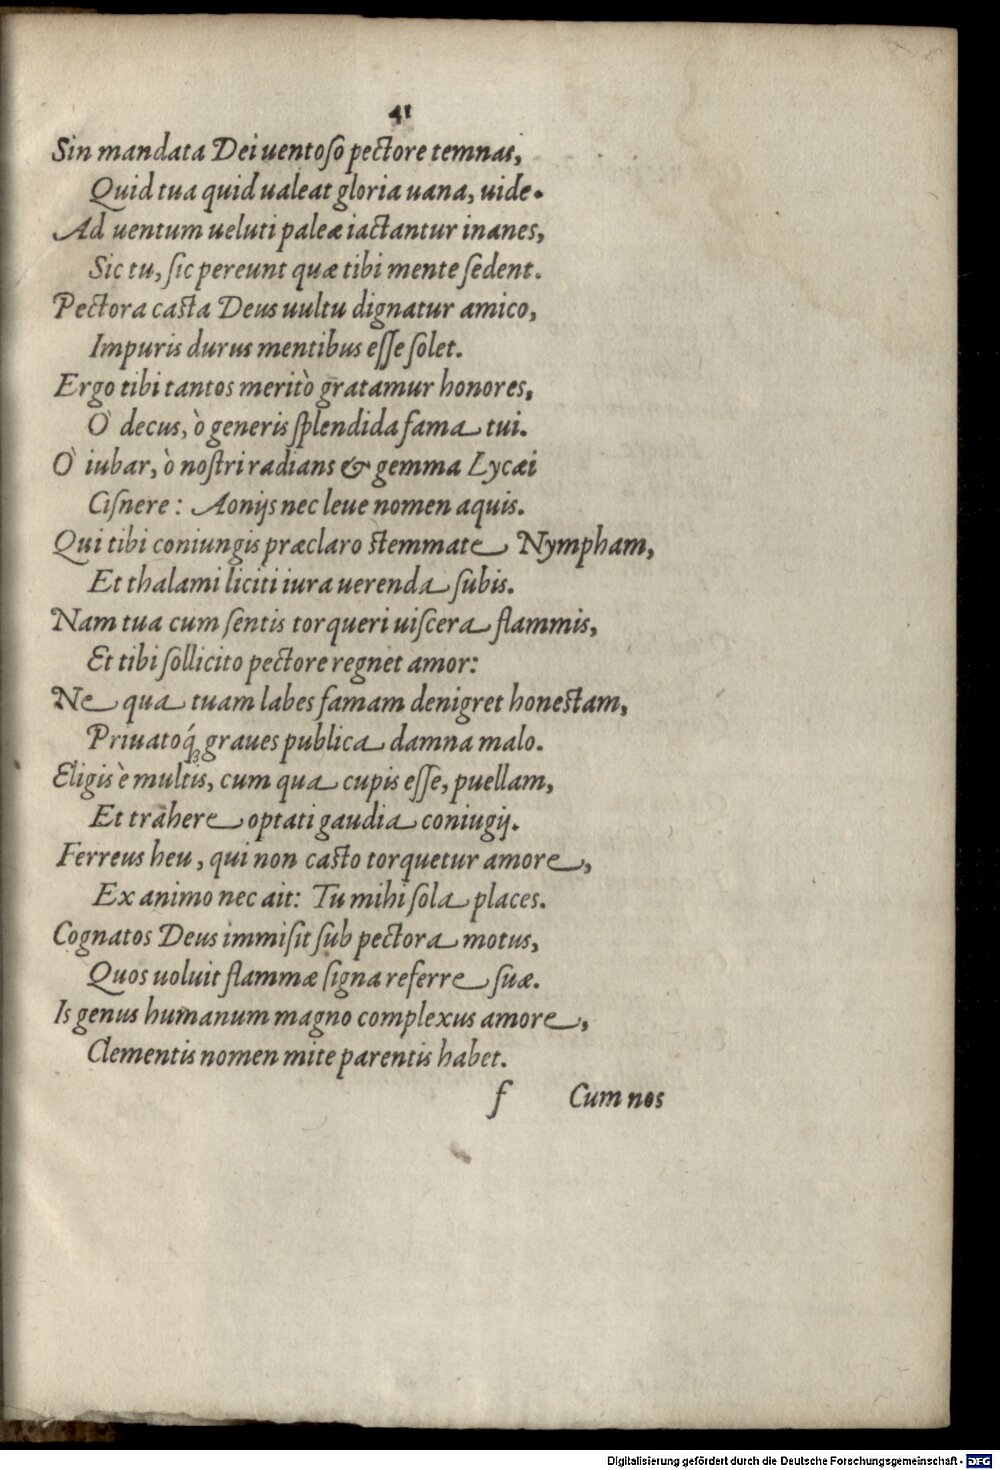 41
Sin mandata Dei uentoſo pectore temnas,
Quid tua quid ualeat gloria uana, uide.
Ad uentum ueluti paleæ iactantur inanes,
Sic tu, ſic pereunt quæ tibi mente ſedent.
Pectora caſta Deus uultu dignatur amico,
Impuris durus mentibus eſſe ſolet.
Ergo tibi tantos meritò gratamur honores,
Ò decus, ò generis ſplendida fama tui.
Ò iubar, ò noſtri radians & gemma Lycæi
Ciſnere: Aonijs nec leue nomen aquis.
Qui tibi coniungis præclaro ſtemmate Nympham,
Et thalami liciti iura uerenda ſubis.
Nam tua cum ſentis torqueri uiſcera flammis,
Et tibi ſollicito pectore regnet amor:
Ne qua tuam labes famam denigret honeſtam,
Priuatoq́ꝫ graues publica damna malo.
Eligis è multis, cum qua cupis eſſe, puellam,
Et trahere optati gaudia coniugij.
Ferreus heu, qui non caſto torquetur amore,
Ex animo nec ait: Tu mihi ſola places.
Cognatos Deus immiſit ſub pectora motus,
Quos uoluit flammæ ſigna referre ſuæ.
Is genus humanum magno complexus amore,
Clementis nomen mite parentis habet.
f Cum nos
Digitalisierung gefördert durch die Deutsche Forschungsgemeinschaft - DFG